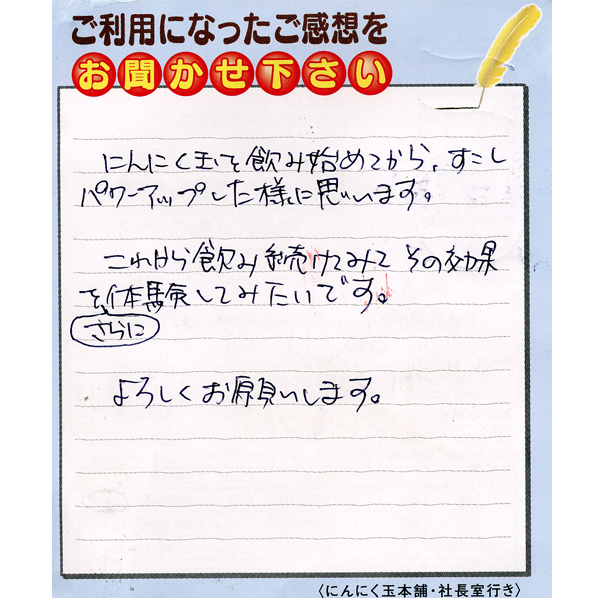 ご利用になったご感想を
お聞かせ下さい
にんにく玉を飲み始めてから、すこし
パワーアップした様に思います。
これから飲み続けてみて その効果
を体験してみたいです。
さらに
よろしくお願いします。
〈にんにく玉本舗・社長室行き〉